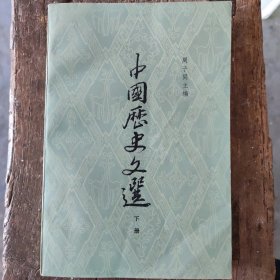 周予同主编
中國歷史文選
下册